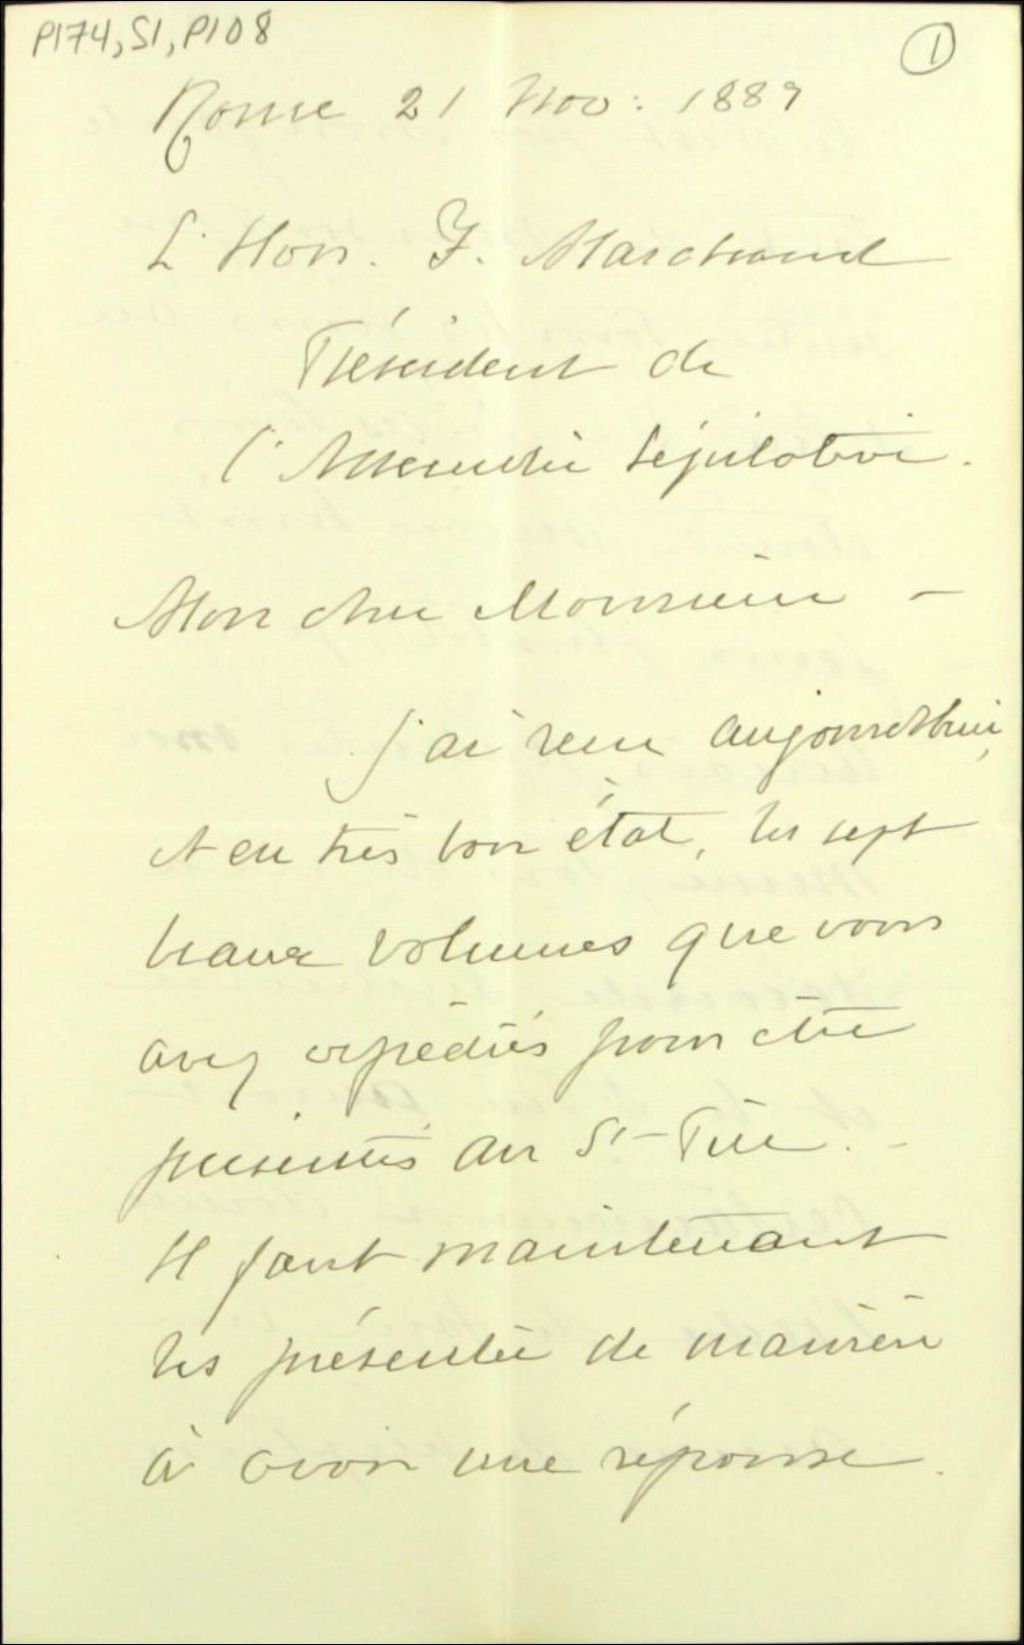 P174,S1,P108
1
Rome 21 Nov: 1889
L'Hon. F. Marchand
Président de
l'Assemblée Législative.
Mon cher Monsieur –
J'ai reçu aujourd'hui,
et en très bon état, les sept
beaux volumes que vous
avez expédiés pour être
présentés au St-Père. –
Il faut maintenant
les présenter de manière
à avoir une réponse.